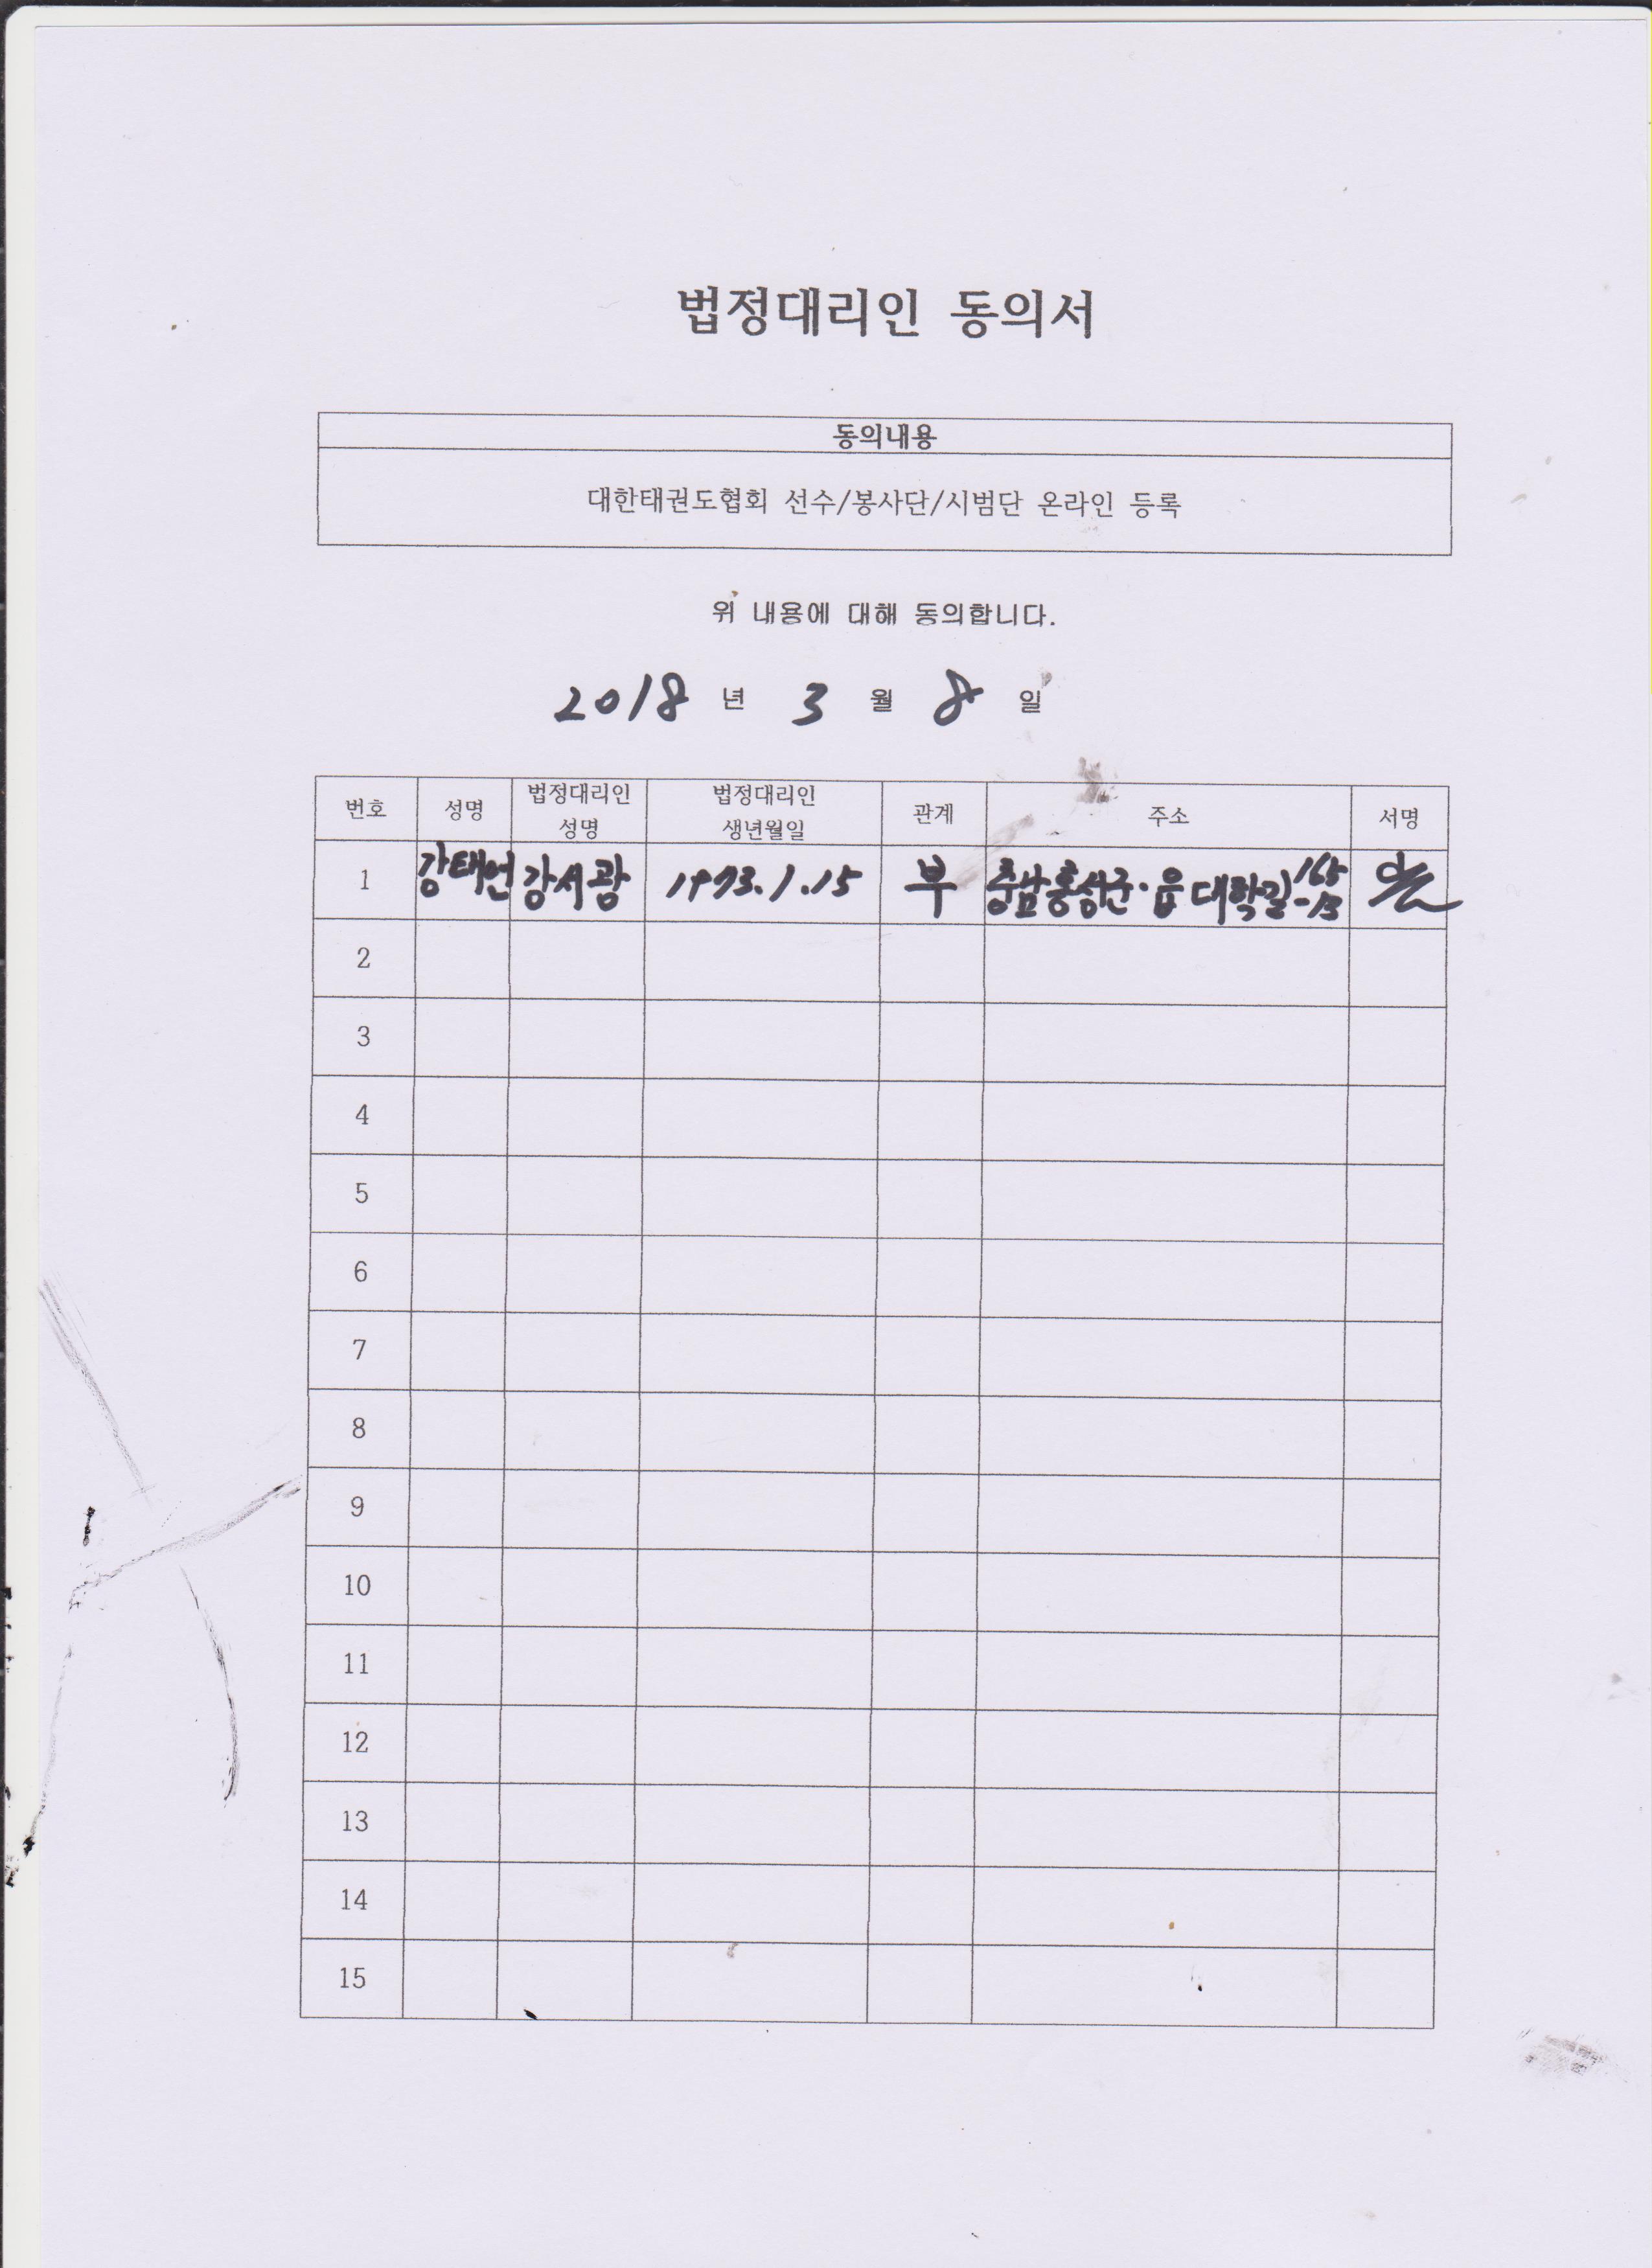 법정대리인 동의서
동의내용
대한태권도협회 선수/봉사단/시범단 온라인 등록
위 내용에 대해 동의합니다.
2018 년 3 월 8 일
번호 성명 법정대리인 성명 법정대리인 생년월일 관계 주소 서명
1 강태언 강서광 1973.1.15 부 충남홍성군·읍 대학길 165-13
2
3
4
5
6
7
8
9
10
11
12
13
14
15